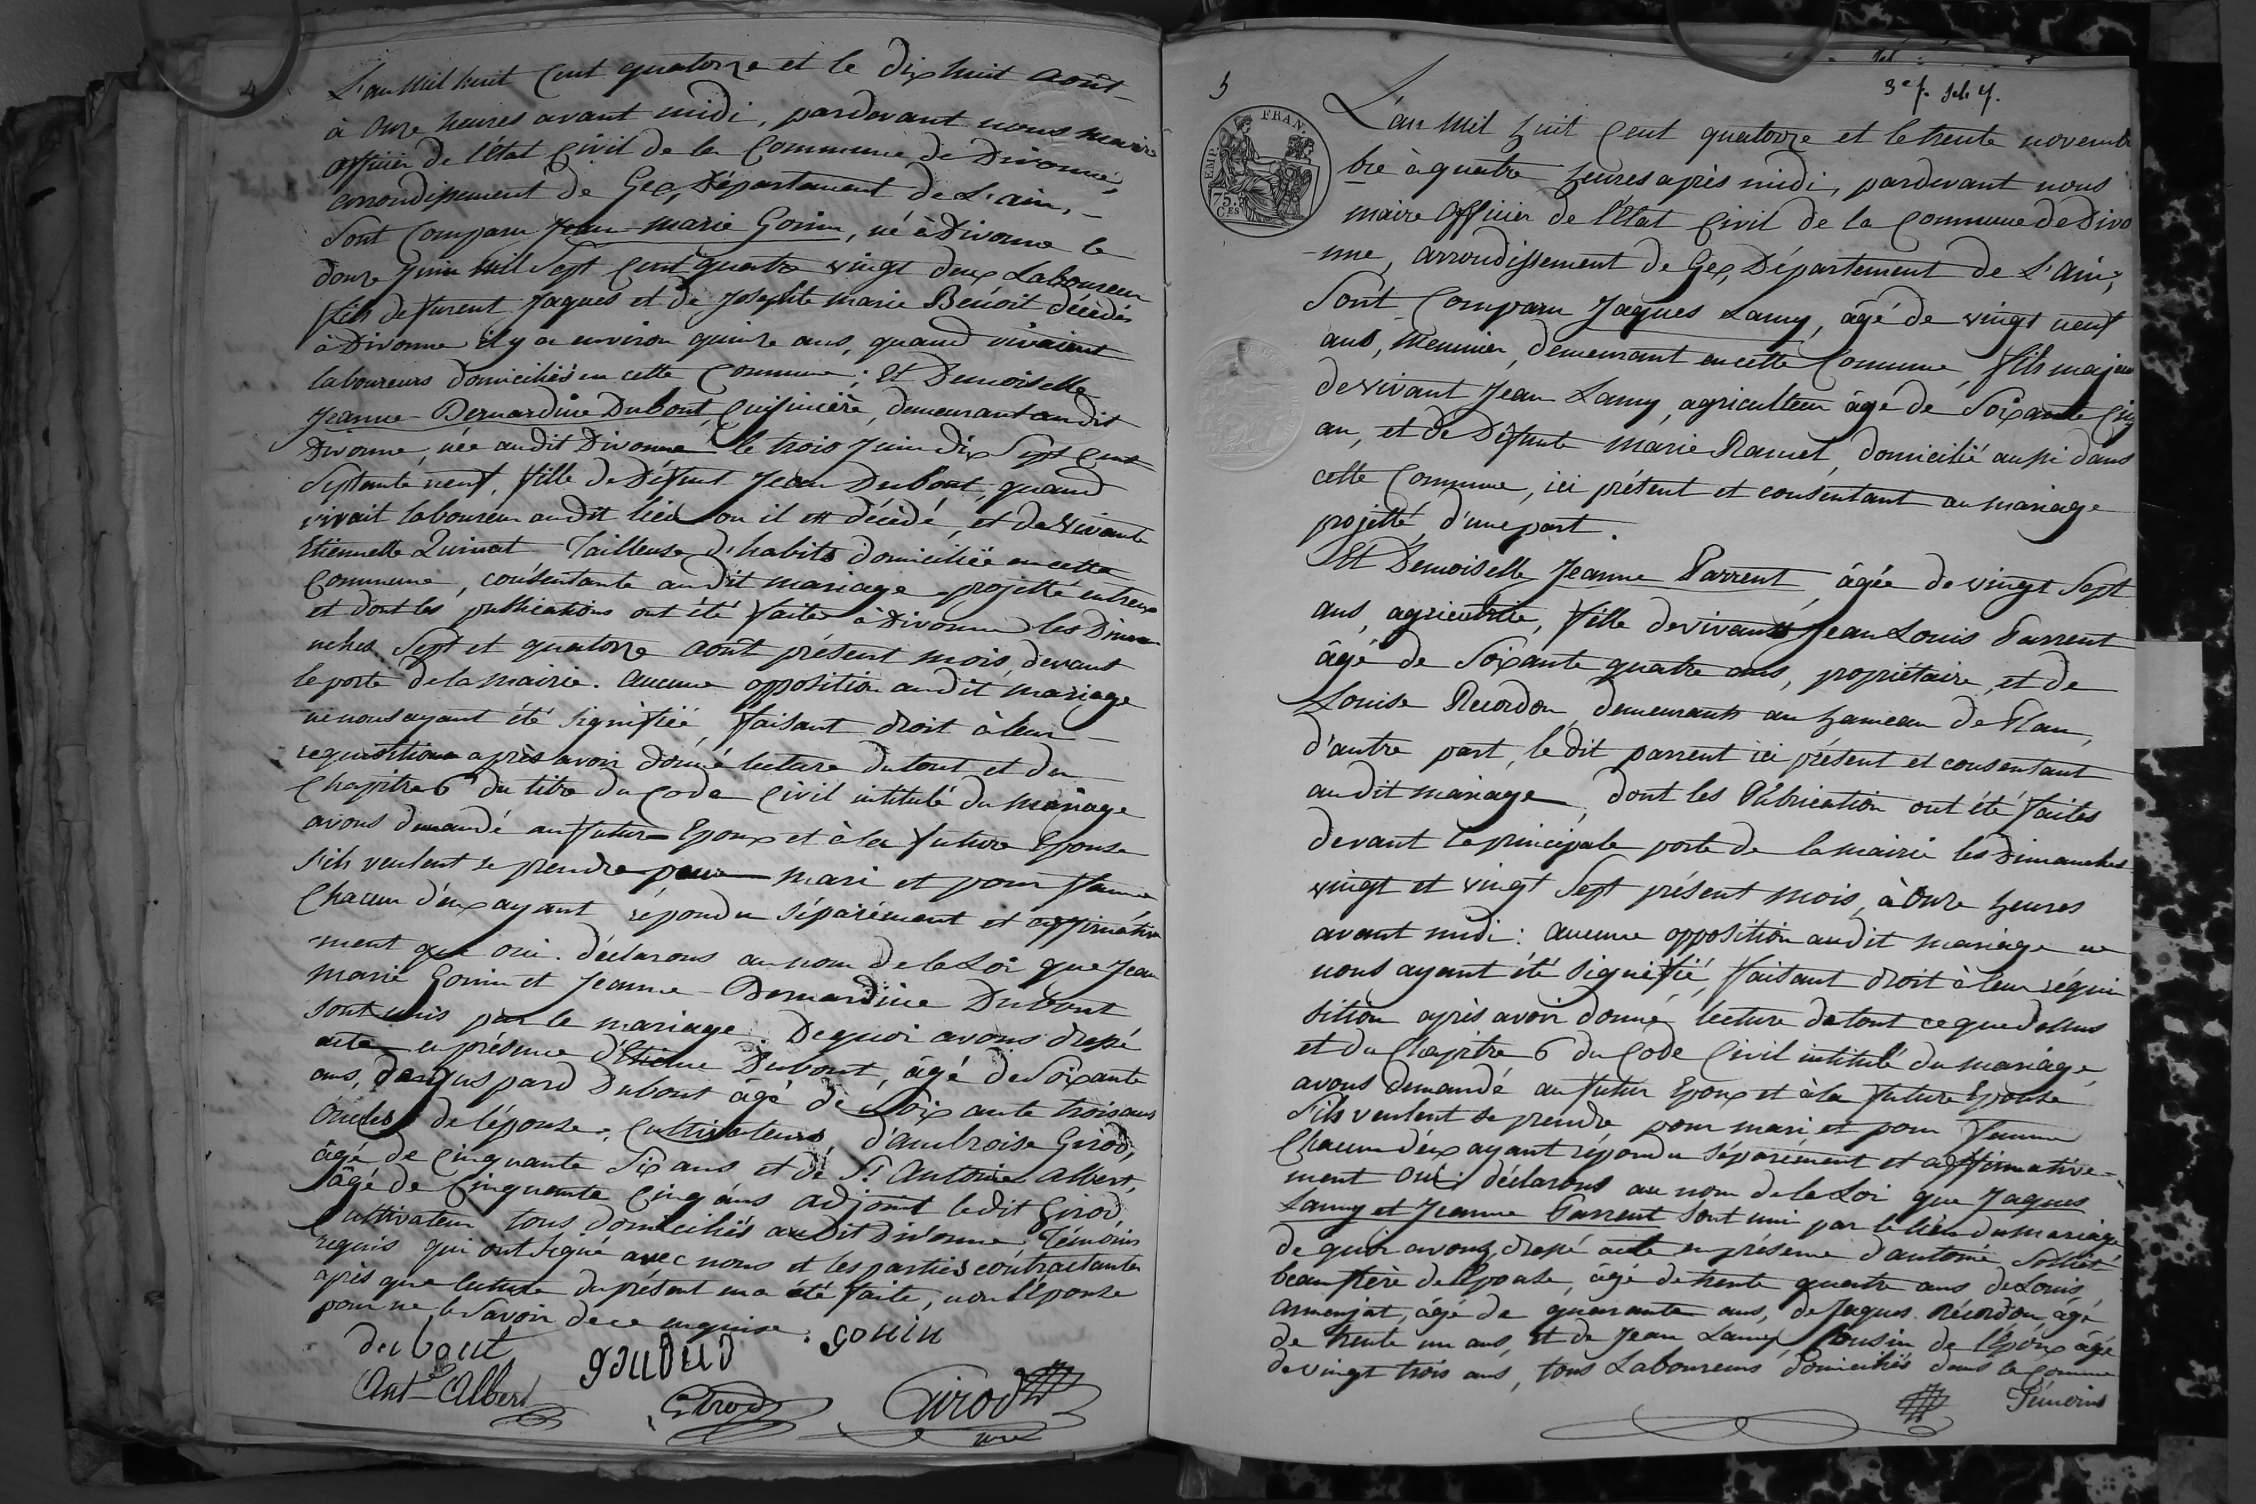 4
L'an mil huit cent quatorze et le dix huit août
à onze heures avant midi, pardevant nous maire
officier de l'état civil de la Commune de Divonne,
arrondissement de Gex, Département de L'ain,
sont comparu Jean-marie Gonin, né à Divonne le
douze Juin mil sept cent quatre vingt deux Laboureur
fils de furent Jaques et de Josephte marie Benoit décédés
à Divonne il y a environ quinze ans, quand vivaient
laboureurs domiciliés en cette Commune; Et Demoiselle
Jeanne-Bernardine Dubout, Cuisinière, demeurant audit
Divonne, née audit Divonne le trois Juin dix sept cent
septante neuf, fille de défunt Jean Dubout, quand
vivait laboureur audit lieu où il est décédé, et de vivante
Etiennette Quinat Tailleuse d'habits domiciliée en cette
Commune, consentante audit mariage projetté entreux
et dont les publications ont été faites à Divonne les Diman
nches sept et quatorze août présent mois, devant
la porte de la mairie. aucune opposition audit mariage
ne nous ayant été signifiée, faisant droit à leur
requisition après avoir donné lecture du tout et du
Chapitre 6 du titre du Code Civil intitulé du mariage
avons demandé au futur Epoux et à la future Epouse
s'ils veulent se prendre pour mari et pour femme
Chacun d'eux ayant répondu séparément et affirmative
ment que oui. déclarons au nom de la Loi que Jean
marie Gonin et Jeanne-Bernardine Dubout
sont unis par le mariage. De quoi avons dressé
acte en présence d'Etienne Dubout, âgé de soixante
ans, de Gaspard Dubout âgé de soixante trois ans
oncles de l'épouse, cultivateurs, d'ambroise Girod,
âgé de cinquante six ans et de Sr. Antoine Albert,
âgé de cinquante cinq ans adjoint ledit Girod,
Cultivateur tous domiciliés audit Divonne, témoins
requis qui ont signé avec nous et les parties contractantes
après que lecture du présent en a été faite, non l'épouse
pour ne le savoir de ce enquise.
dubout gonin
Ant Albert Girod Girod
5
3e f. 
EMP. FRAN.
75. CES
L'an mil huit cent quatorze et le trente novem
bre à quatre heures après midi, pardevant nous
maire officier de l'état civil de la commune de Divo
-nne, arrondissement de Gex, Département de L'ain,
sont comparu Jaques Lamy, âgé de vingt neuf
ans, meunier, demeurant en cette Commune, fils majeur
de vivant Jean Lamy, agriculteur âgé de soixante cinq
an, et de défunte marie Ramel, domicilié aussi dans
cette Commune, ici présent et consentant au mariage
projetté, d'une part.
Et Demoiselle Jeanne Parrent, âgée de vingt sept
ans, agricultrice, fille de vivants Jean Louis Parrent
âgé de soixante quatre ans, propriétaire, et de
Louise Recordon, demeurants au hameau de Plan,
d'autre part, le dit parrent ici présent et consentant
audit mariage, dont les Publication ont été faites
devant la principale porte de la mairie les Dimanches
vingt et vingt sept présent mois, à onze heures
avant midi: aucune opposition audit mariage ne
nous ayant été signifié, faisant droit à leur réqui
sition après avoir donné lecture de tout ce que dessus
et du Chapitre 6 du Code Civil intitulé du mariage,
avons demandé au futur Epoux et à la future Epouse
s'ils veulent se prendre pour mari et pour femme
Chacun d'eux ayant répondu séparément et affirmative-
ment oui; déclarons au nom de la Loi que Jaques
Lamy et Jeanne Parrent sont uni par le lien du mariage
de quoi avons dressé acte en présence d'antoine
beau frère de l'épouse, âgé de trente quatre ans de Louis
Armenjat, âgé de quarante ans, de Jaques Récordon, âgé
de trente un ans, et de Jean Lamy, cousin de l'époux âgé
de vingt trois ans, tous Laboureurs domiciliés dans la comme
Témoins